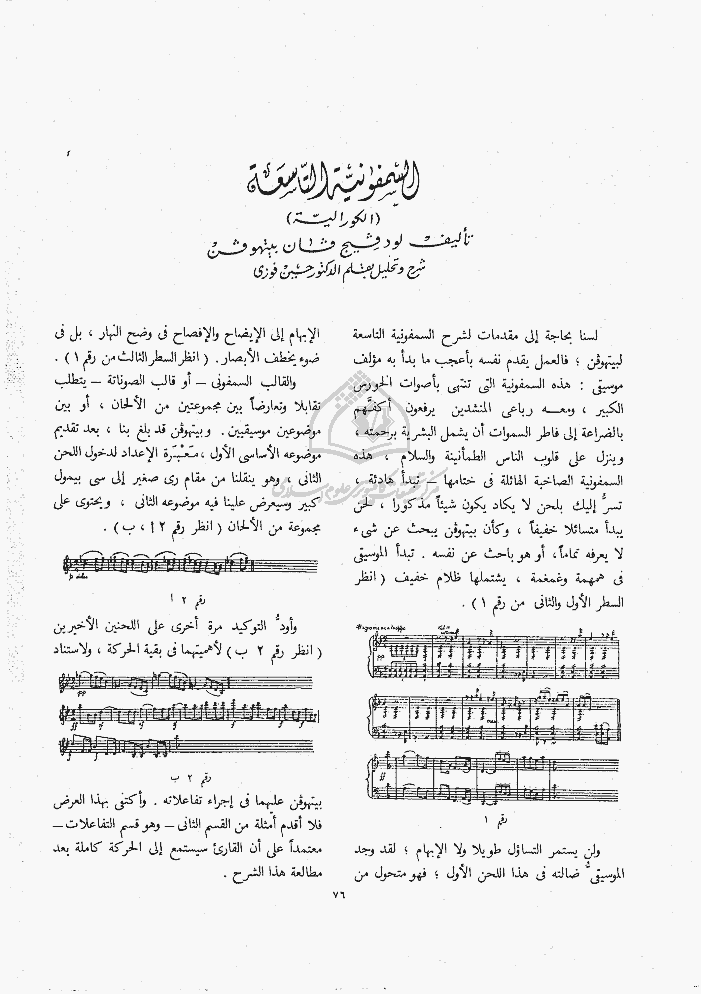 السمفونية التاسعة
(الكورالية)
تأليف لودفيج ڤان بيتهوڤن
شرح وتحليل بقلم الدكتور حسين فوزى
لسنا بحاجة إلى مقدمات لشرح السمفونية التاسعة
لبيتهوڤن ؛ فالعمل يقدم نفسه بأعجب ما بدأ به مؤلف
موسيقى : هذه السمفونية التى تنتهى بأصوات الخورس
الكبير ، ومعه رباعى المنشدين يرفعون أكفَّهم
بالضراعة إلى فاطر السموات أن يشمل البشرية برحمته ،
وينزل على قلوب الناس الطمأنينة والسلام ، هذه
السمفونية الصاخبة الهائلة فى ختامها – تبدأ هادئة ،
تسرُّ إليك بلحن لا يكاد يكون شيئاً مذكوراً ، لحن
يبدأ متسائلا خفيفاً ، وكأن بيتهوڤن يبحث عن شىء
لا يعرفه تماماً، أو هو باحث عن نفسه . تبدأ الموسيقى
فى همهمة وغمغمة ، يشتملها ظلام خفيف ( انظر
السطر الأول والثانى من رقم ١ ) .
رقم ١
ولن يستمر التساؤل طويلا ولا الإبهام ؛ لقد وجد
الموسيقىُّ ضالته فى هذا اللحن الأول ؛ فهو متحول من
الإبهام إلى الإيضاح والإفصاح فى وضح النهار ، بل فى
ضوء يخطف الأبصار . ( انظر السطر الثالث من رقم ١ ) .
والقالب السمفونى – أو قالب الصوناتة – يتطلب
تقابلا وتعارضاً بين مجموعتين من الألحان ، أو بين
موضوعين موسيقيين . وبيتهوڤن قد بلغ بنا ، بعد تقديم
موضوعه الأساسى الأول ، مَعْبَرَة الإعداد لدخول اللحن
الثانى ، وهو ينقلنا من مقام رى صغير إلى سى بيمول
كبير وسيعرض علينا فيه موضوعه الثانى ، ويحتوى على
مجموعة من الألحان ( انظر رقم ٢ ا ، ب ) .
رقم ٢ ا
وأودُّ التوكيد مرة أخرى على اللحنين الأخيرين
( انظر رقم ٢ ب ) لأهميتهما فى بقية الحركة ، ولاستناد
رقم ٢ ب
بيتهوڤن عليهما فى إجراء تفاعلاته . وأكتفى بهذا العرض
فلا أقدم أمثلة من القسم الثانى – وهو قسم التفاعلات –
معتمداً على أن القارئ سيستمع إلى الحركة كاملة بعد
مطالعة هذا الشرح .
٧٦